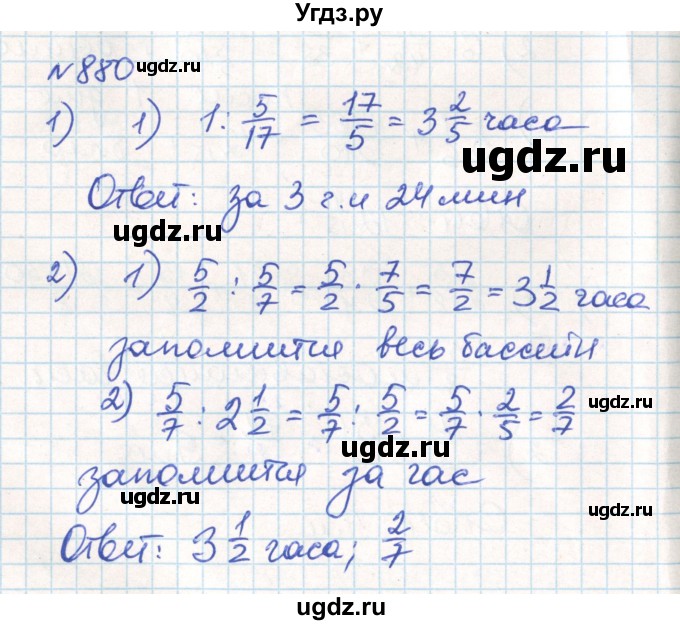 Угдз.ру
N 880 ugdz.ru
1) 1) 1 : 5/17 = 17/5 = 3 2/5 часа
ugdz.ru
ugdz.ru
Ответ: за 3 г. и 24 мин
ugdz.ru
2) 1) 5/2 : 5/7 = 5/2 · 7/5 = 7/2 = 3 1/2 часа
заполнится весь бассейн
2) 5/7 : 2 1/2 = 5/7 : 5/2 = 5/7 · 2/5 = 2/7
ugdz.ru
ugdz.ru
заполнится за час
ugdz.ru
Ответ: 3 1/2 часа; 2/7
ugdz.ru
ugdz.ru